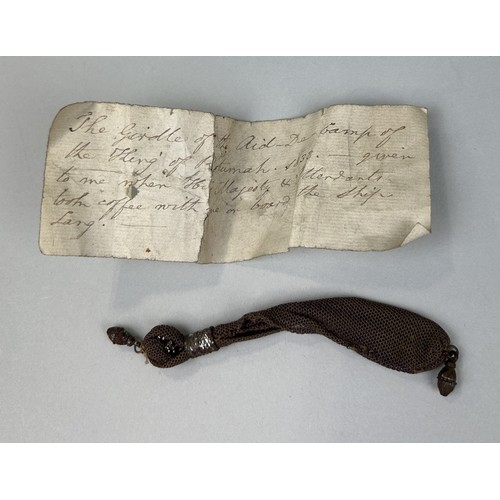 The Girdle of the Aid-De Camp of
the "King" of Attumah. 1833. — given
to me when His Majesty & Attendants
took coffee with me on board the Ship
Lang. —